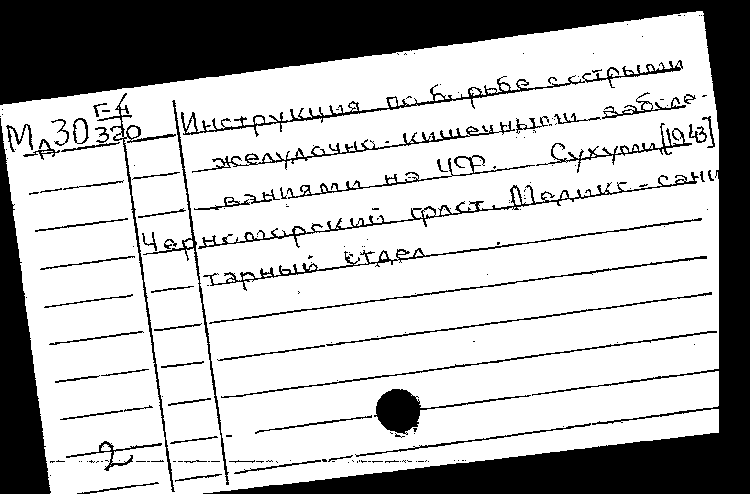 Г-4
Мд30 320
Инструкция по борьбе с острыми
желудочно-кишечными заболе-
ваниями на ЧФ. Сухуми, [1943]
Черноморский флот. Медико-сани
тарный отдел
2